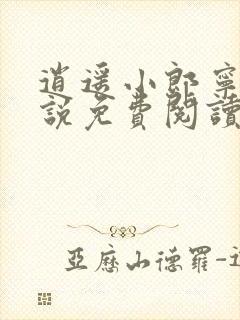 逍遥小郎寧
說免費閱讀
亞歷山德羅-